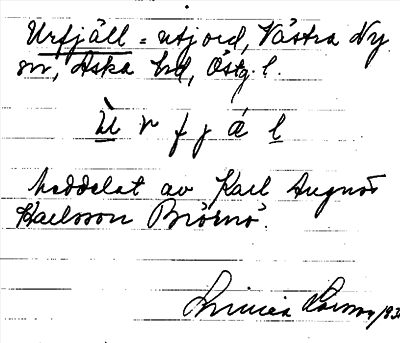 Urfjäll = utjord, Västra Ny
sn, Aska hd, Östg. l.
Ù r f j á l
Meddelat av Karl August
Karlsson Björnö.